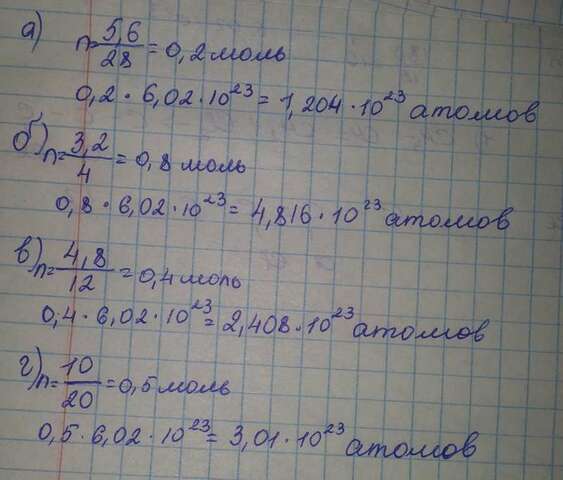 а) n=5,6/28=0,2моль
0,2·6,02·10²³=1,204·10²³ атомов
б) n=3,2/4=0,8моль
0,8·6,02·10²³=4,816·10²³ атомов
в) n=4,8/12=0,4моль
0,4·6,02·10²³=2,408·10²³ атомов
г) n=10/20=0,5моль
0,5·6,02·10²³=3,01·10²³ атомов